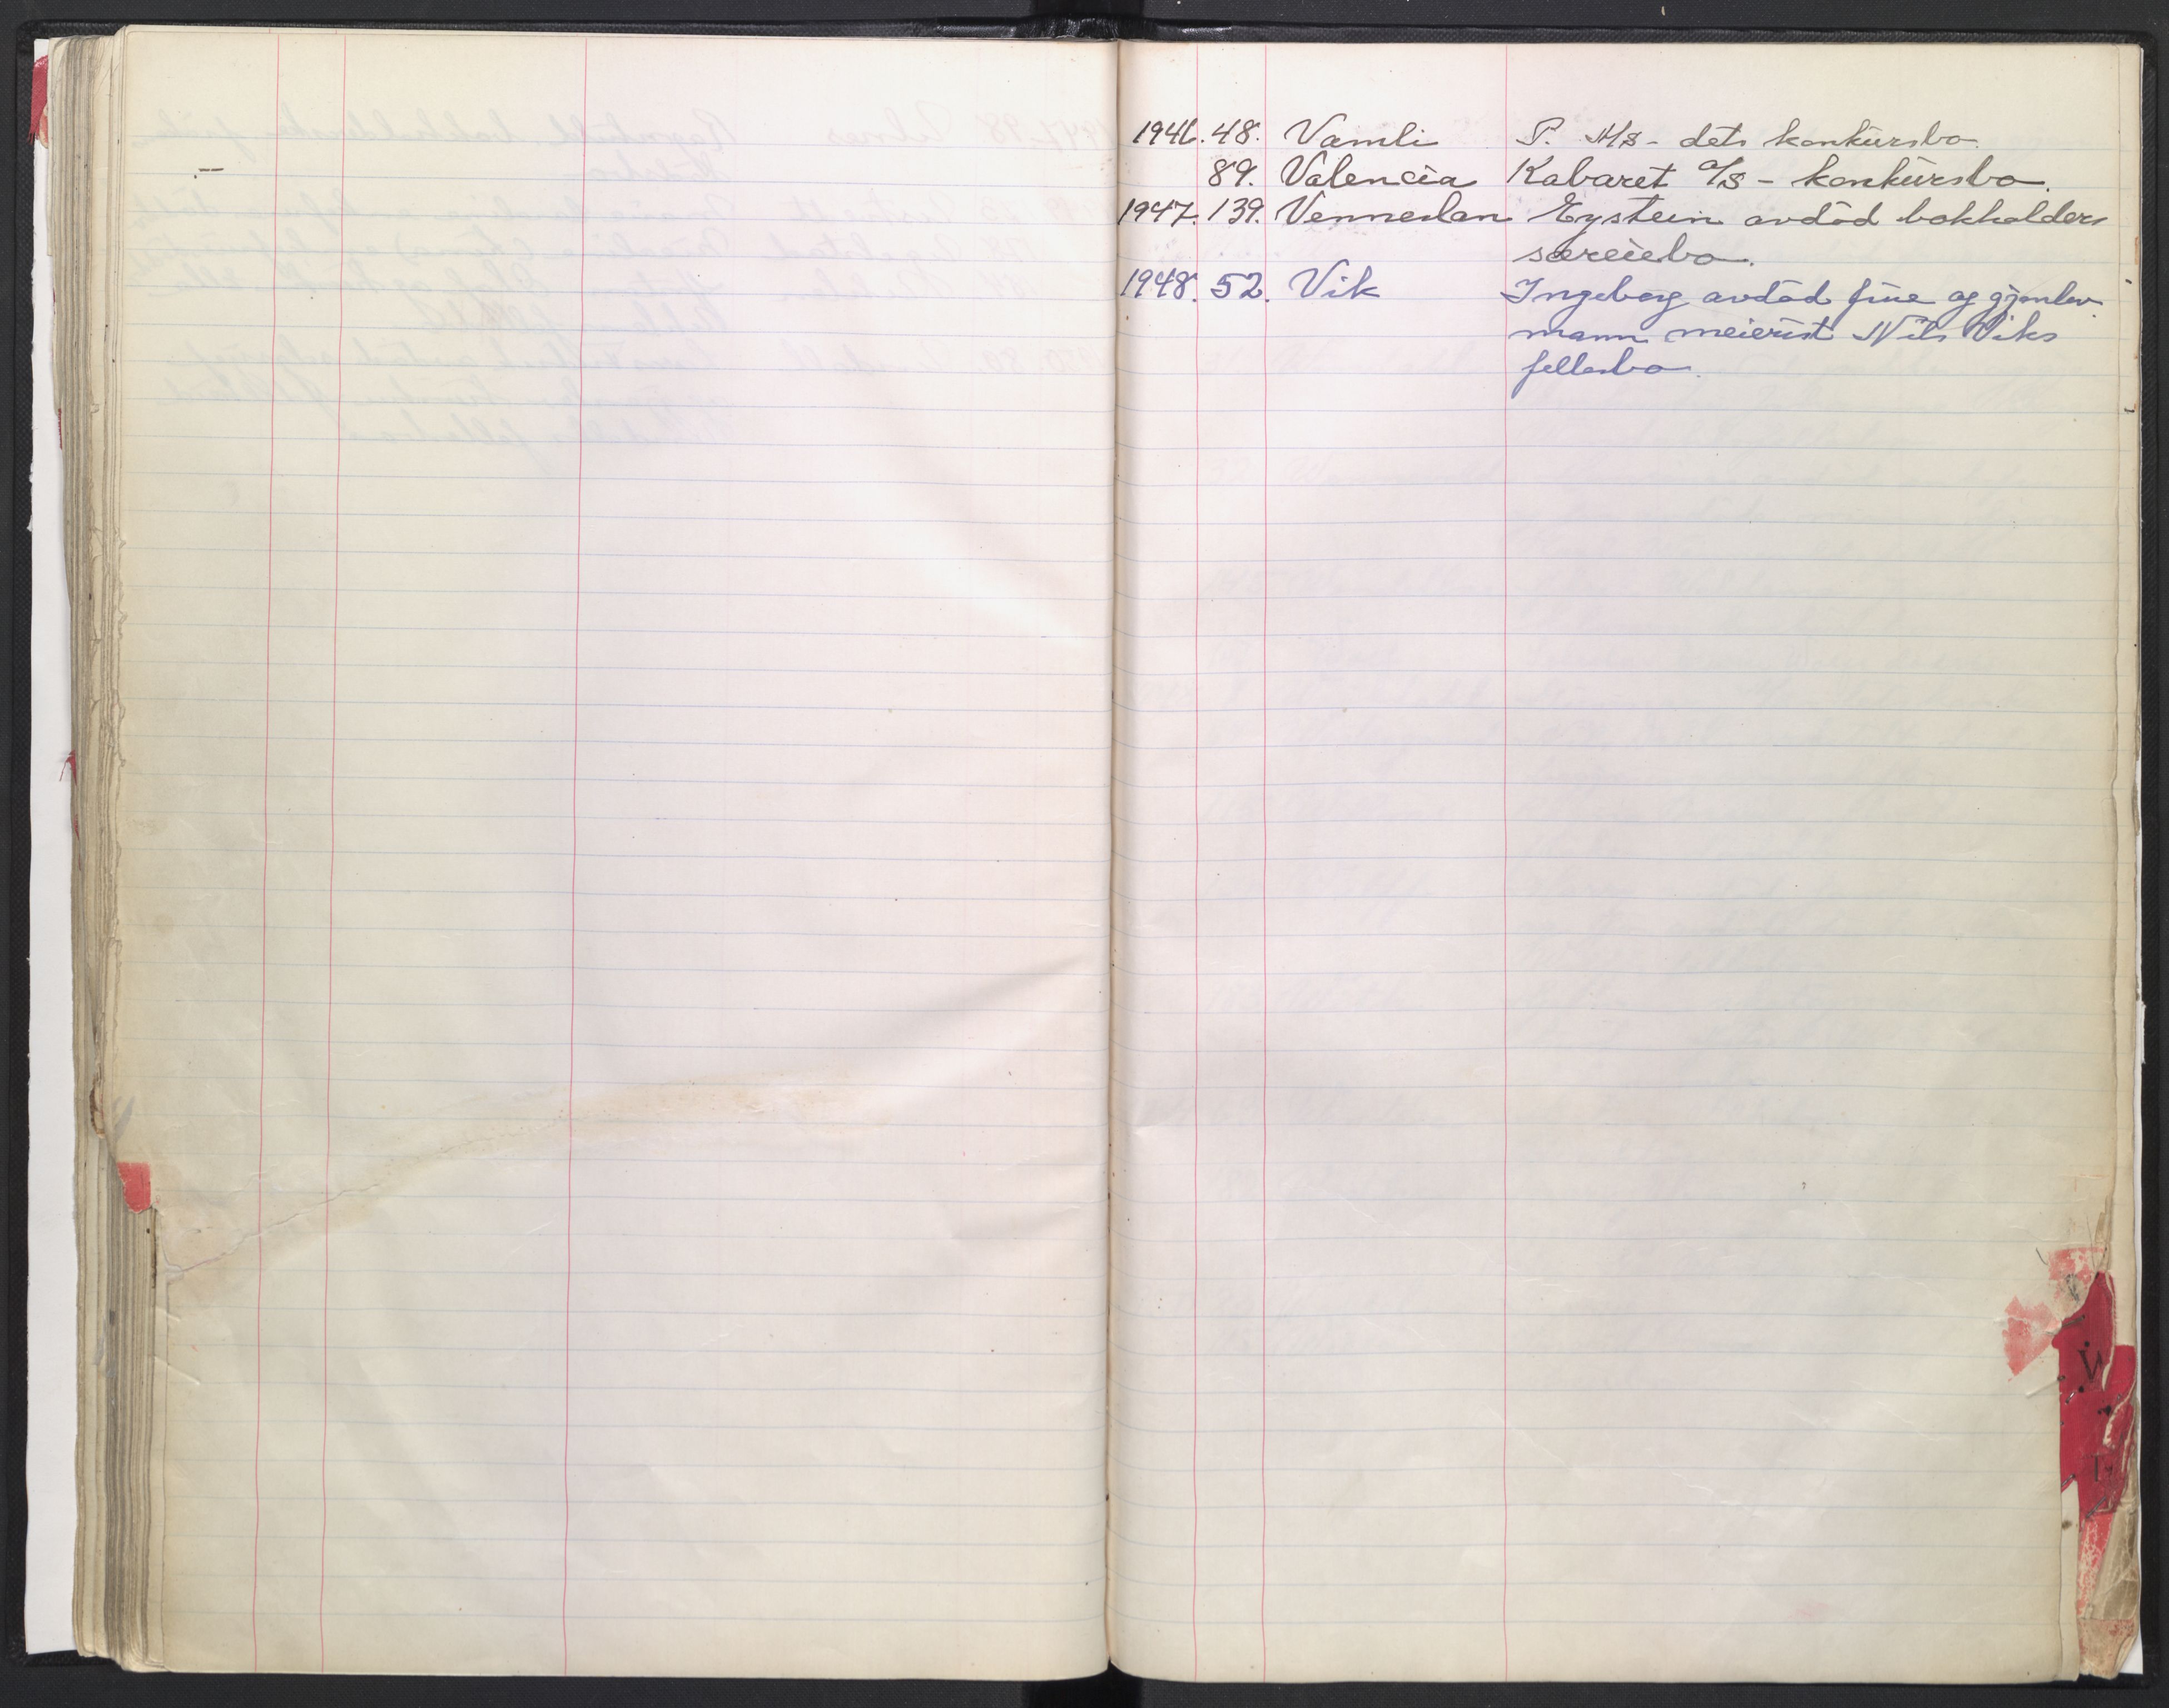 1946. 48. Vamli P. A/S - dets konkursbo.
89. Valencia Kabaret A/S - konkursbo.
1947. 139. Venneslan Eystein avdød bokholders
særeiebo.
1948. 52. Vik Ingeborg avdød frue og gjenlev.
mann meierist Nils Viks
fellesbo.
W